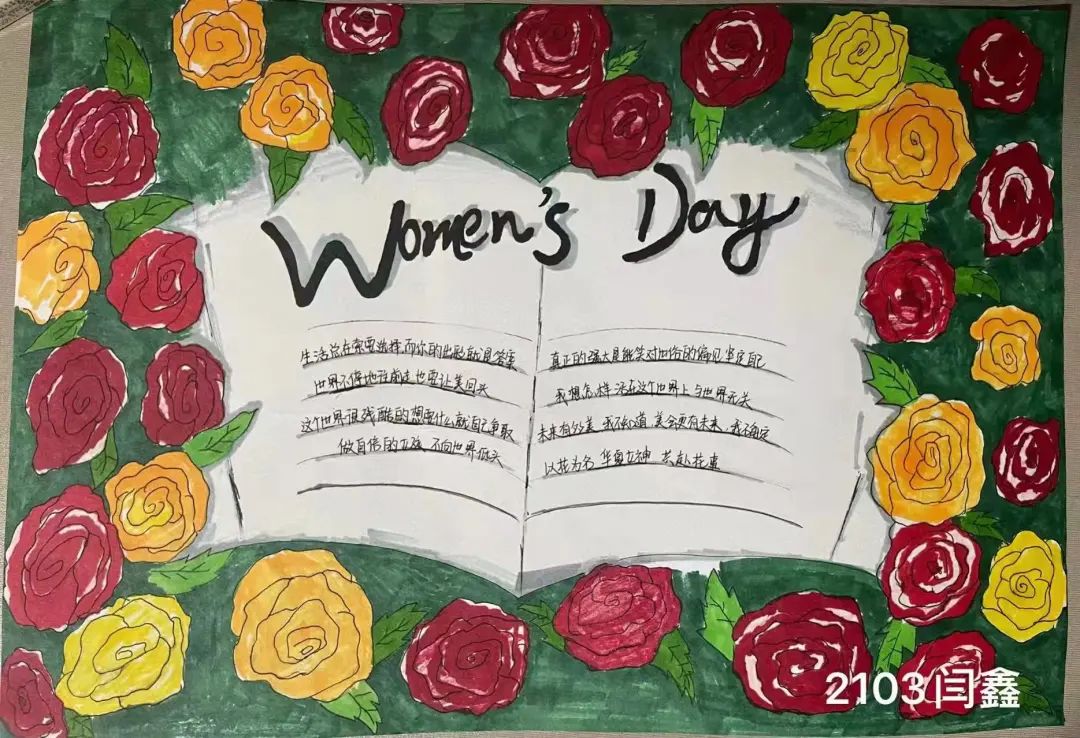 Women's Day
生活总在索要选择,而你的出彩就是答案
世界不停地往前走也要让美回头
这个世界很残酷的想要什么就自己争取
做自信的 不向世界低头
真正的强大是能笑对世俗的偏见坚定自己
我想怎样活在这个世界上与世界无关
未来有多美 我不知道 美会更有未来 我确定
以花为名 女神 共赴花
2103闫鑫